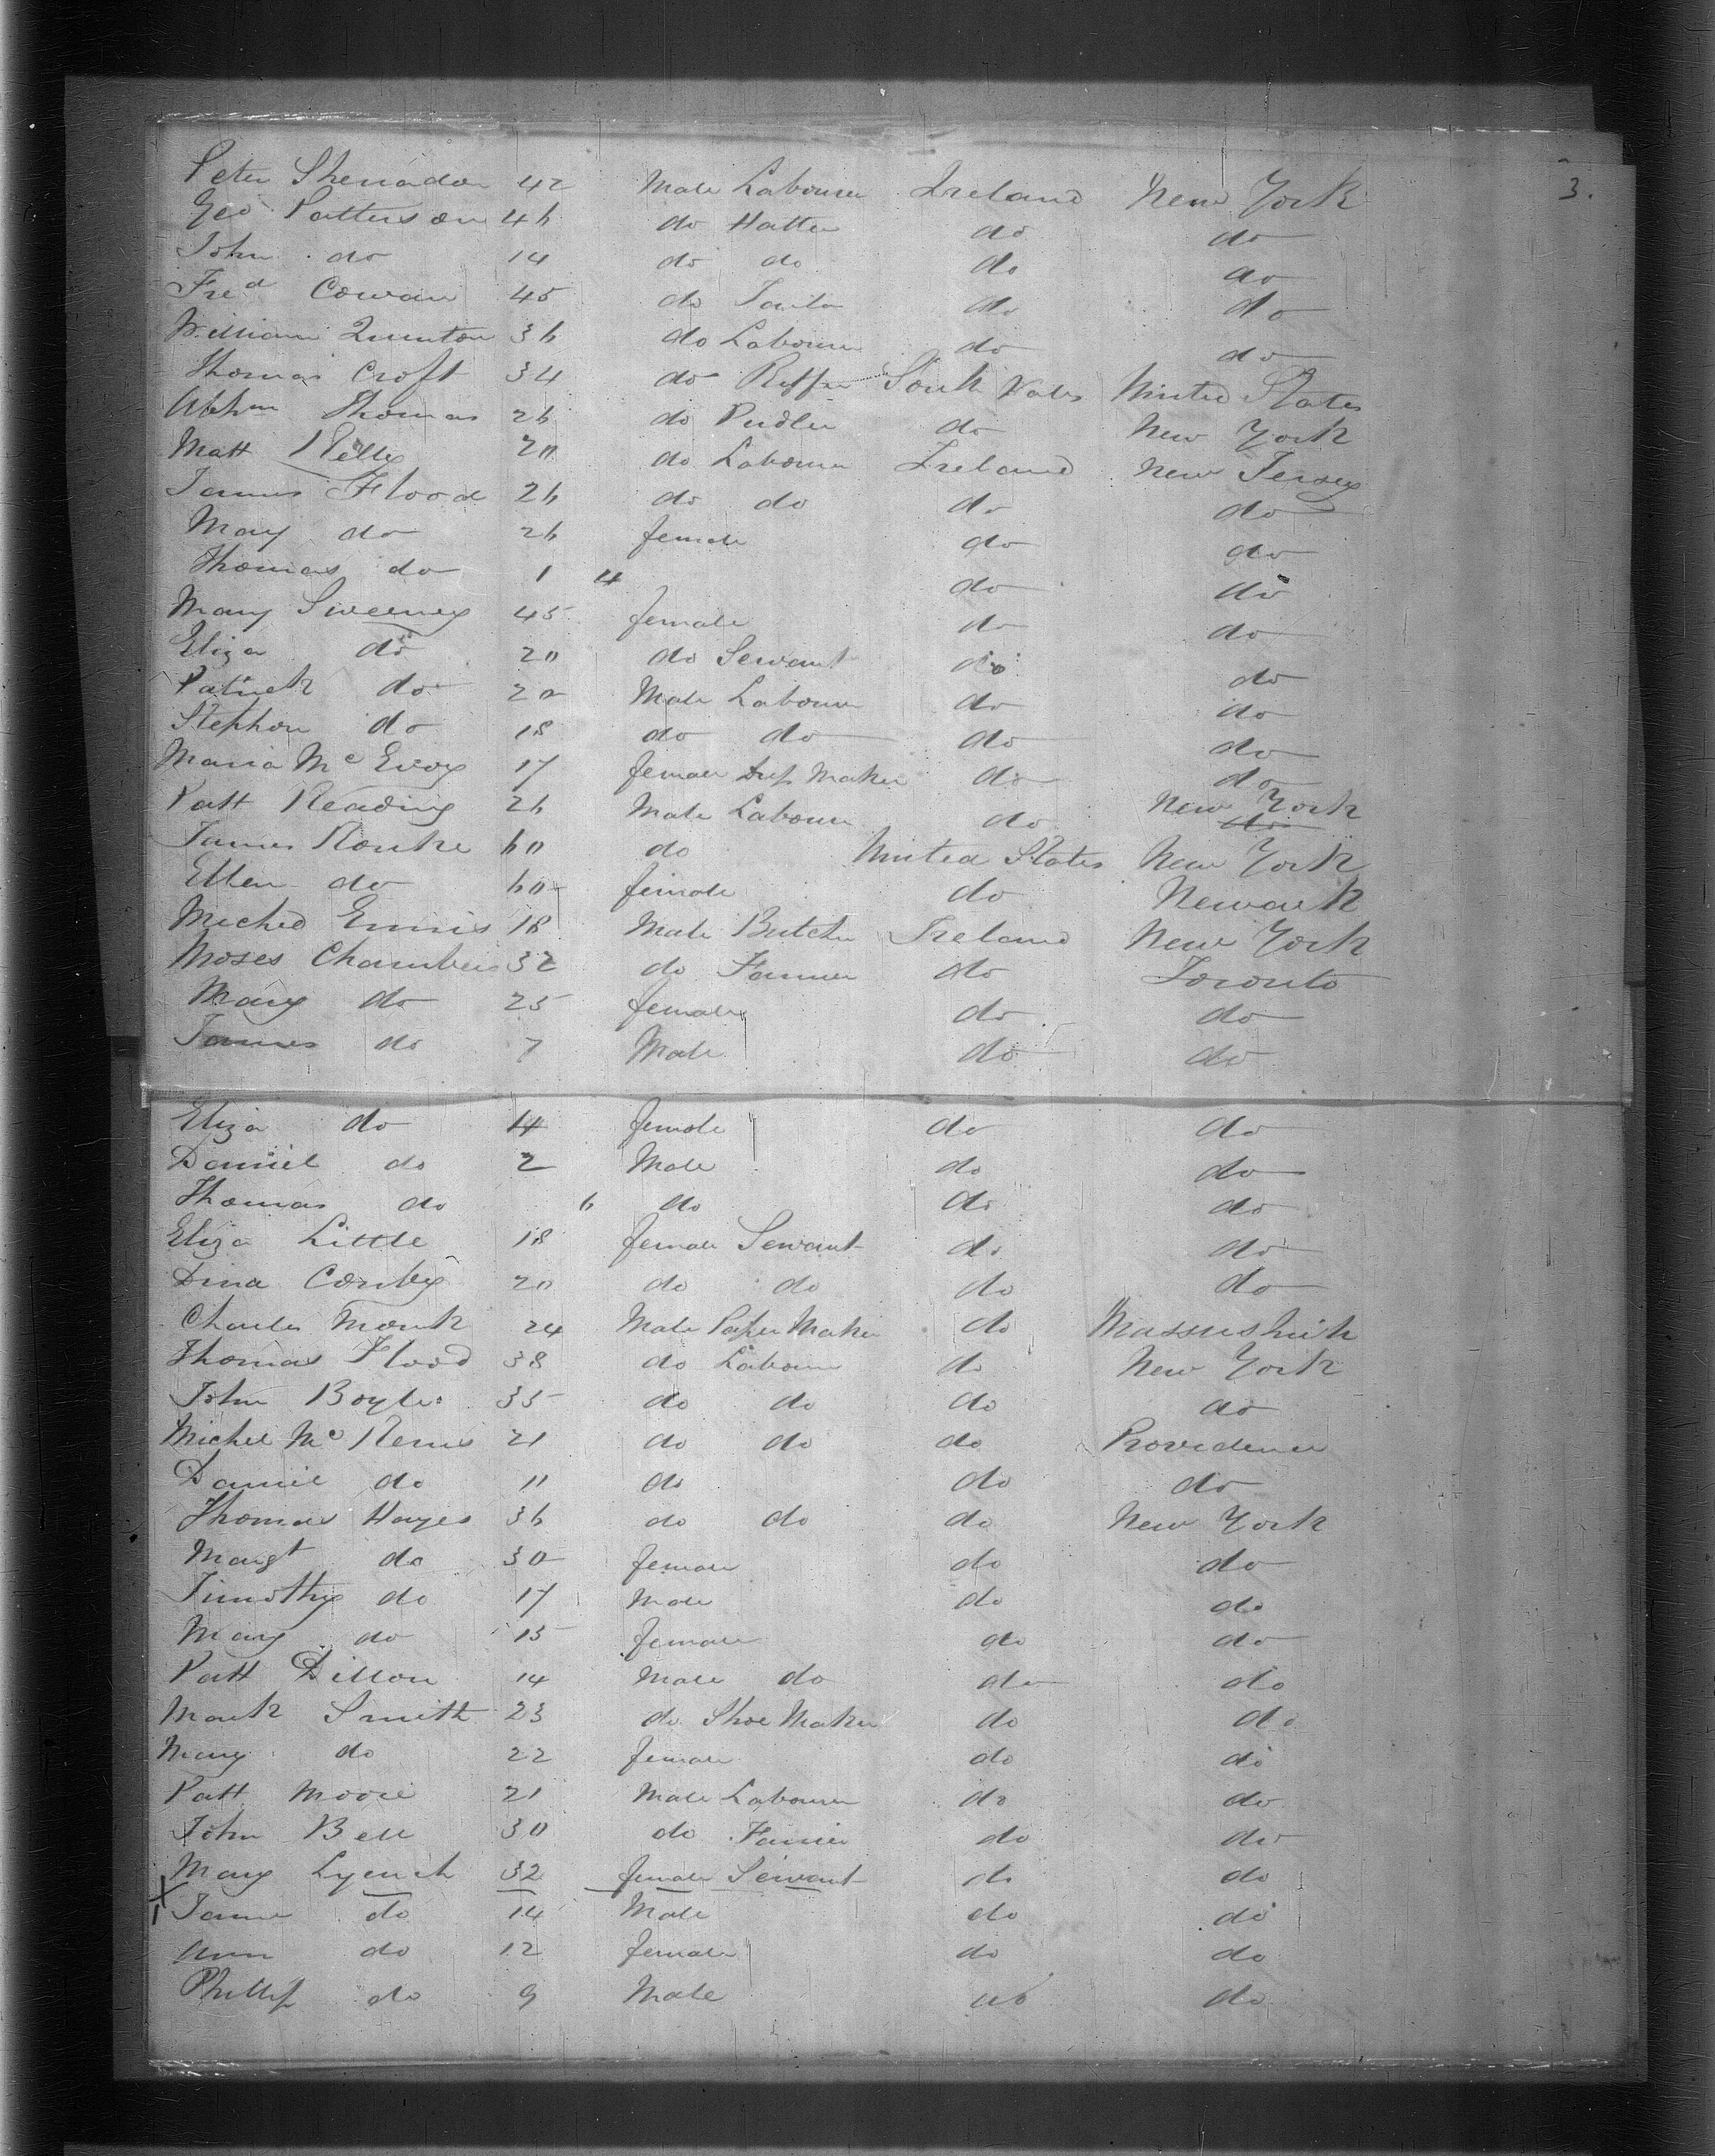 3.
Peter Sheriadon 42 Male Labourer Ireland New York
Geo Patterson 46 do Hatter do do
John do 14 do do do do
Fred Cowan 45 do Tailor do do
William Quinton 36 do Labourer do do
Thomas Croft 34 do South Wales United States
Abhm Thomas 26 do Pudler do New York
Matt Kelly 20 do Labourer Ireland New Jersey
James Flood 26 do do do do
Mary do 26 female do do
Thomas do 1 4 do do
Mary Sweeney 45 female do do
Eliza do 20 do Servant do do
Patrick do 20 Male Labourer do do
Stephen do 18 do do do do
Maria Mc Evoy 17 female Dress Maker do do
Patt Reading 26 Male Labourer do New York do
James Rourke 60 do United States New York
Ellen do 60 female do Newark
Micheal Ennis 18 Male Butcher Ireland New York
Moses Chambers 32 do Farmer do Toronto
Mary do 25 female do do
James do 7 Male do do
Eliza do 4 female do do
Daniel do 2 Male do do
Thomas do 6 do do do
Eliza Little 18 female Servant do do
Dina Conby 20 do do do do
Charles Monk 24 Male Paper Maker do
Thomas Flood 38 do Labour do New York
John Boyle 35 do do do do
Michel Mc 21 do do do Providence
Daniel do 11 do do do
Thomas Hayes 36 do do do New York
Margt do 30 female do do
Timothy do 17 Male do do
Mary do 15 female do do
Patt Dillon 14 Male do do do
Mark Smith 23 do Shoe Maker do do
Mary do 22 female do do
Patt Moore 21 Male Labourer do do
John Bell 30 do do do
Mary Lyench 32 female Servant do do
X James do 14 Male do do
Ann do 12 female do do
Phillip do 9 Male do do